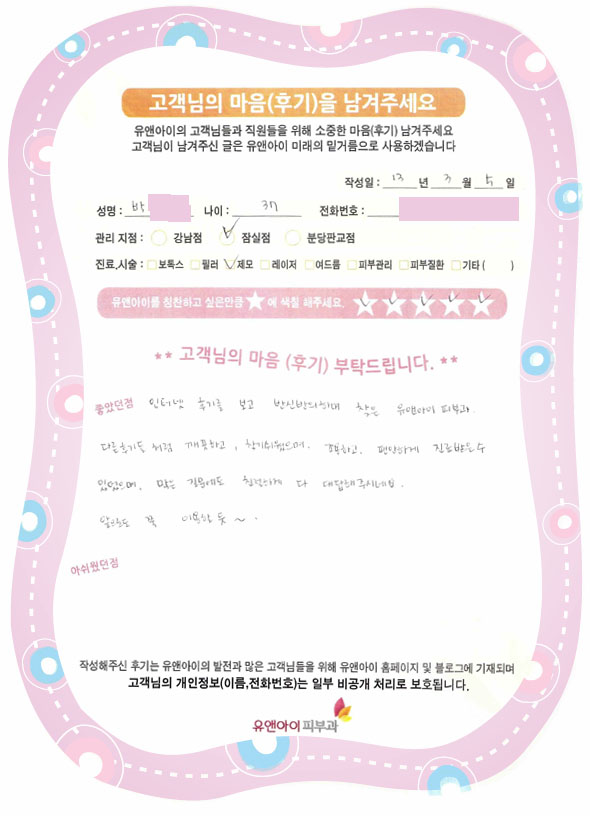 고객님의 마음(후기)을 남겨주세요
유앤아이의 고객님들과 직원들을 위해 소중한 마음(후기) 남겨주세요
고객님이 남겨주신 글은 유앤아이 미래의 밑거름으로 사용하겠습니다
작성일 : 13 년 3 월 5 일
성명 : 박 나이 : 37 전화번호 :
관리 지점 : 강남점 잠실점 분당판교점
진료,시술 : 보톡스 필러 제모 레이저 여드름 피부관리 피부질환 기타 ( )
유앤아이를 칭찬하고 싶은만큼 ★ 에 색칠 해주세요.
** 고객님의 마음 (후기) 부탁드립니다. **
좋았던점 인터넷 후기를 보고 반신반의하며 찾은 유앤아이 피부과.
다른후기들 처럼 깨끗하고, 찾기쉬웠으며, 조용하고, 편안하게 진료받을수
있었으며, 많은 질문에도 친절하게 다 대답해주시네요.
앞으로도 꼭 이용할 듯 ~.
아쉬웠던점
작성해주신 후기는 유앤아이의 발전과 많은 고객님들을 위해 유앤아이 홈페이지 및 블로그에 기재되며
고객님의 개인정보(이름,전화번호)는 일부 비공개 처리로 보호됩니다.
유앤아이피부과